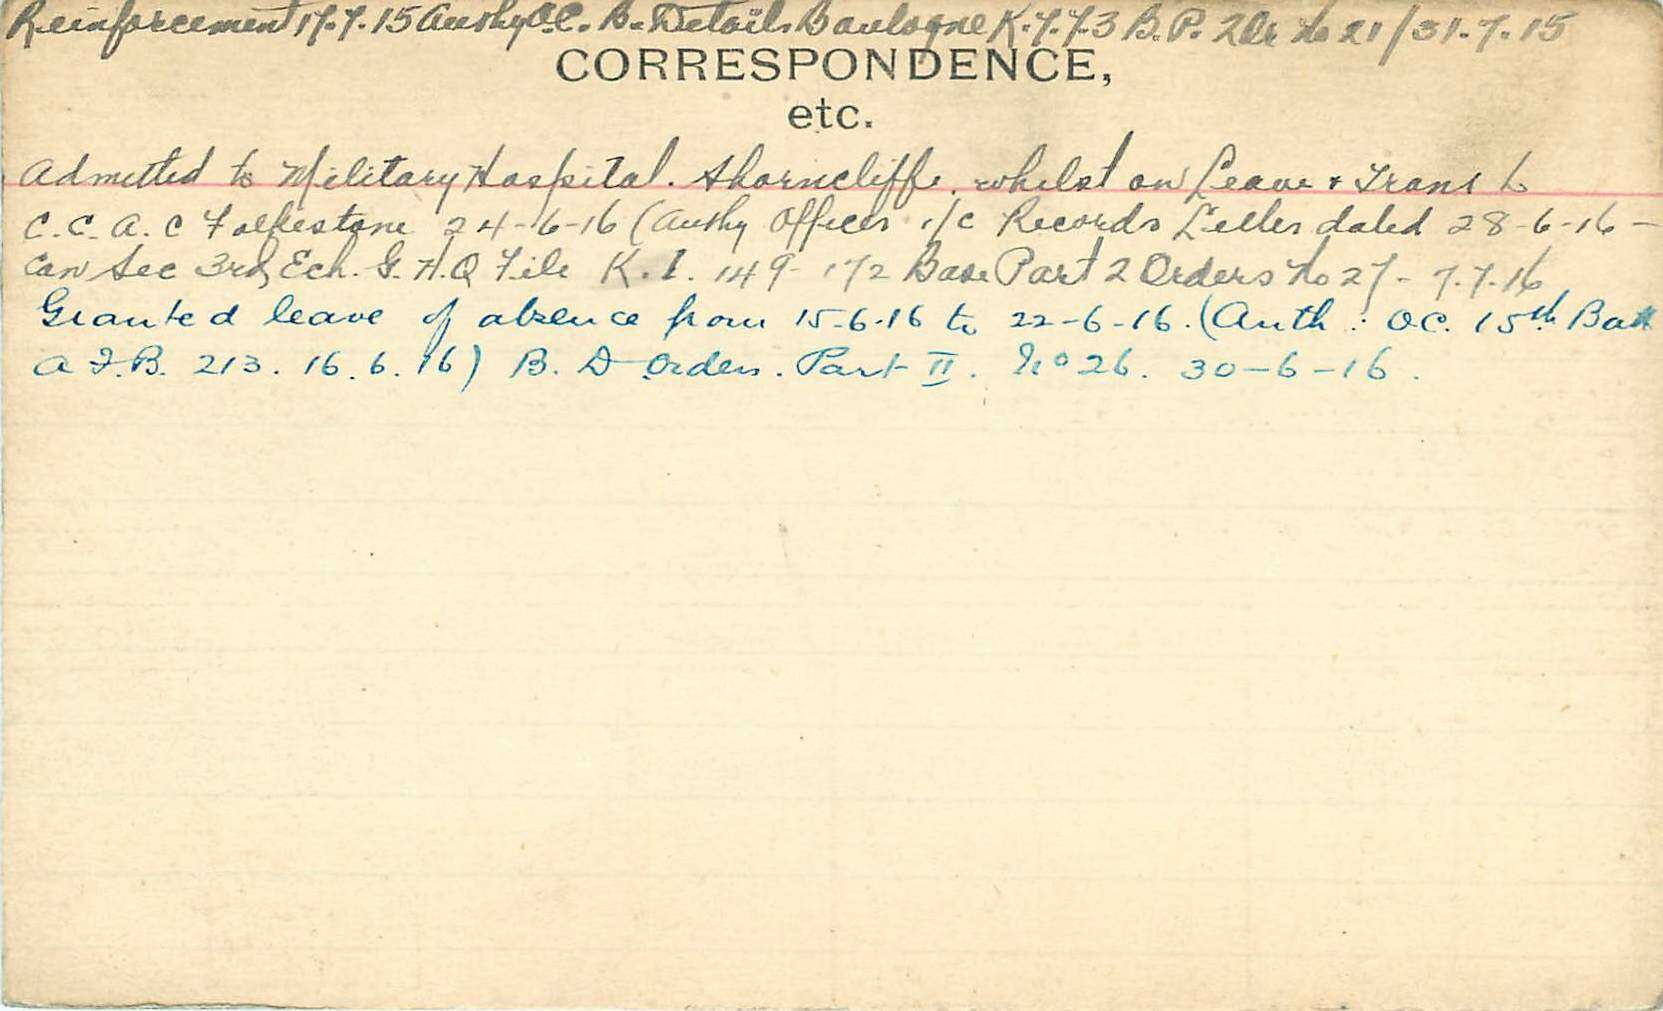 Reinforcement 17.7.15 Authy O.C. B. Details Boulogne K.7.7.3 B.P. 2 Or No 21/31.7.15
CORRESPONDENCE,
etc.
Admitted to Military Hospital. Shorncliffe. whilst on Leave & Trans to
C.C.A.C Folkestone 24-6-16 (Authy Officer i/c Records Letter dated 28-6-16 -
Can Sec 3rd Ech. G.H.Q File K.I. 149- 172 Base Part 2 Orders No 27- 7.7.16
Granted leave of absence from 15-6-16 to 22-6-16. (Auth: O.C. 15th Batt
A.F.B. 213. 16.6.16) B. D Orders. Part II. No 26. 30-6-16.